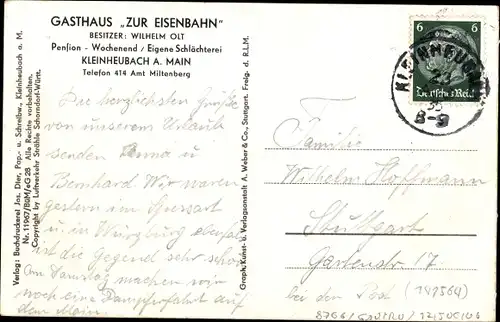 GASTHAUS „ZUR EISENBAHN"
BESITZER: WILHELM OLT
Pension - Wochenend / Eigene Schlächterei
KLEINHEUBACH A. MAIN
Telefon 414 Amt Miltenberg
Die herzlichsten Grüße
von unserem Urlaub
senden Anna u.
Bernhard Wir waren
gestern im Spessart
u. in Würzburg ebenfalls
ist die Gegend sehr schön
Am Samstag machen wir
noch eine Dampferfahrt auf
dem Main.
Verlag: Buchdruckerei Jos. Dier, Pap.- u. Schreibw., Kleinheubach a. M.
Nr. 11967/BöM/eG 28 Alle Rechte vorbehalten.
Copyright by Luftverkehr Strähle Schorndorf-Württ.
Graph. Kunst- u. Verlagsanstalt A. Weber & Co., Stuttgart. Freig. d. R.L.M.
6 6
Deutsches Reich
KLEINHEUBACH
8-9
Familie
Wilhelm Hoffmann
Stuttgart
Gartenstr 17
bei der Post